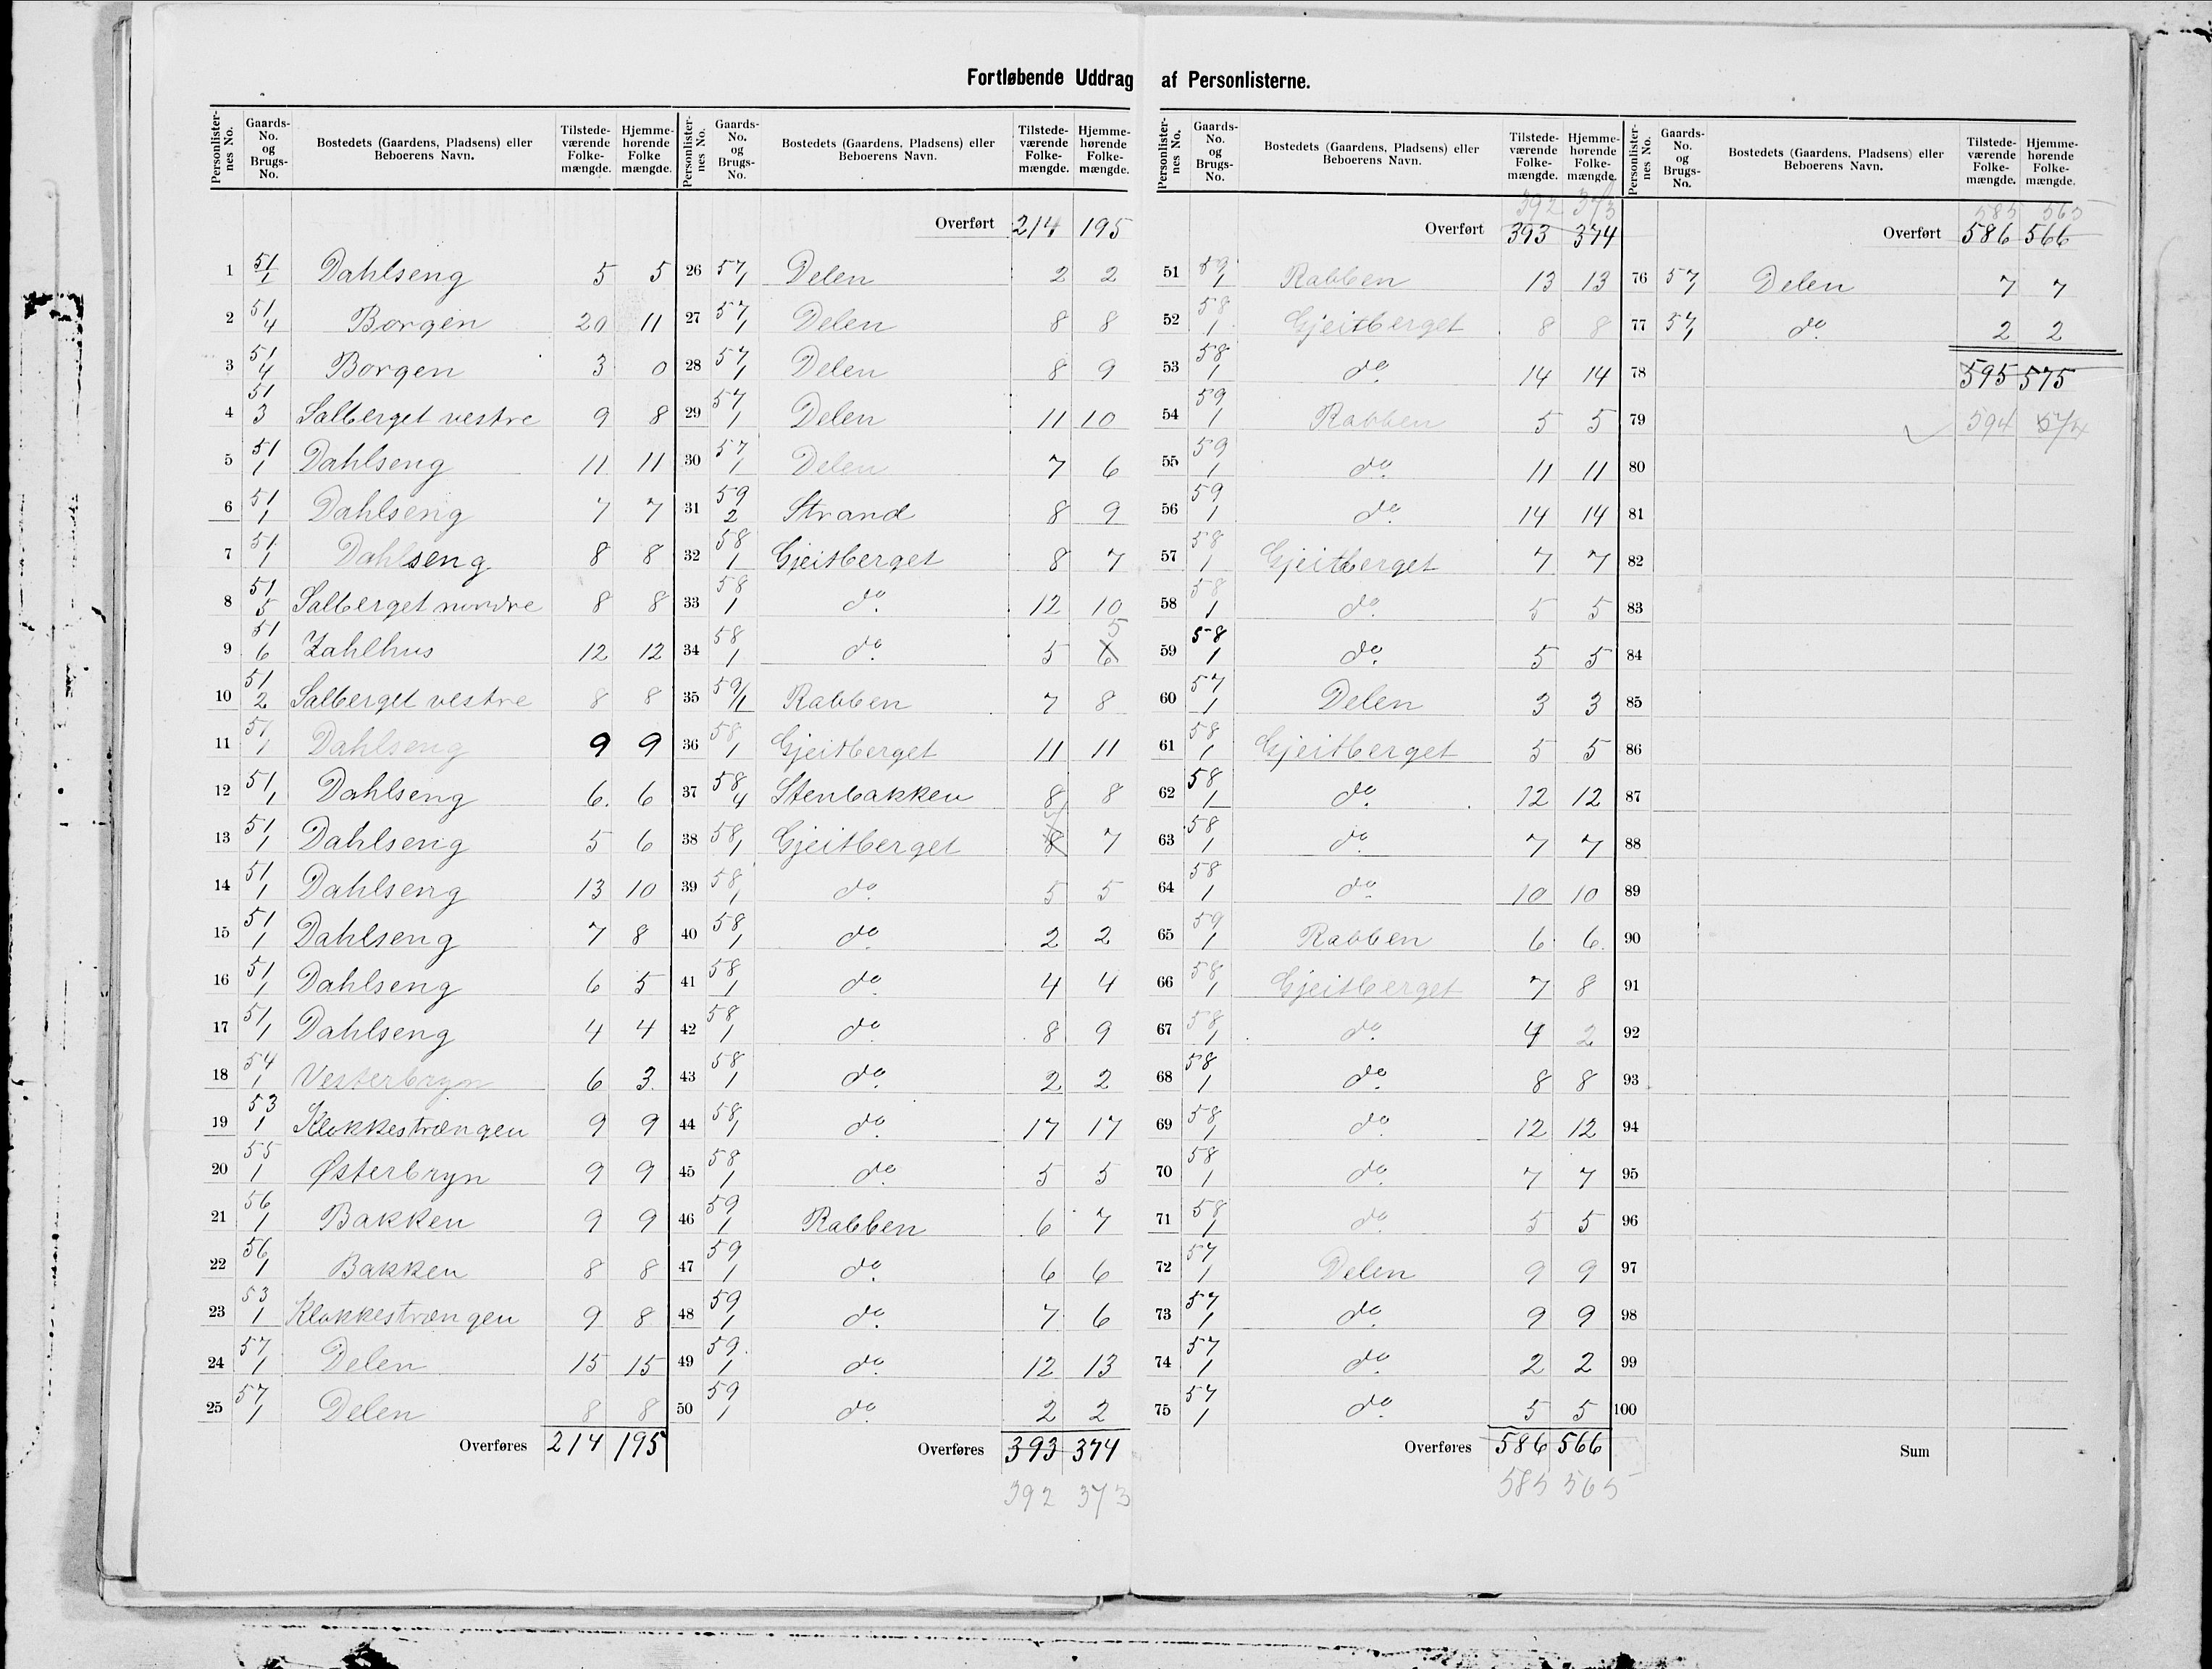 Fortløbende Uddrag af Personlisterne.
Personlister-nes No. | Gaards-No. og Brugs-No. | Bostedets (Gaardens, Pladsens) eller Beboerens Navn. | Tilstede-værende Folke-mængde. | Hjemme-hørende Folke mængde.
1 51/1 Dahlseng 5 5
2 51/4 Borgen 20 11
3 51/4 Borgen 3 0
4 51/3 Salberget vestre 9 8
5 51/1 Dahlseng 11 11
6 51/1 Dahlseng 7 7
7 51/1 Dahlseng 8 8
8 51/5 Salberget nordre 8 8
9 51/6 Zahlhus 12 12
10 51/2 Salberget vestre 8 8
11 51/1 Dahlseng 9 9
12 51/1 Dahlseng 6. 6
13 51/1 Dahlseng 5 6
14 51/1 Dahlseng 13 10
15 51/1 Dahlseng 7 8
16 51/1 Dahlseng 6 5
17 51/1 Dahlseng 4 4
18 54/1 Vesterbryn 6 3
19 53/1 Klokkestrængen 9 9
20 55/1 Østerbryn 9 9
21 56/1 Bakken 9 9
22 56/1 Bakken 8 8
23 53/1 Klokkestrængen 9 8
24 57/1 Delen 15 15
25 57/1 Delen 8 8
Overføres 214 195
Personlister-nes No. | Gaards-No. og Brugs-No. | Bostedets (Gaardens, Pladsens) eller Beboerens Navn. | Tilstede-værende Folke-mængde. | Hjemme-hørende Folke-mængde.
Overført 214 195
26 57/1 Delen 2 2
27 57/1 Delen 8 8
28 57/1 Delen 8 9
29 57/1 Delen 11 10
30 57/1 Delen 7 6
31 59/2 Strand 8 9
32 58/1 Gjeitberget 8 7
33 58/1 do. 12 10
34 58/1 do. 5 6 5
35 59/1 Rabben 7 8
36 58/1 Gjeitberget 11 11
37 58/4 Stenbakken 8 8
38 58/1 Gjeitberget 8 7 7
39 58/1 do. 5 5
40 58/1 do. 2 2
41 58/1 do. 4 4
42 58/1 do. 8 9
43 58/1 do. 2 2
44 58/1 do. 17 17
45 58/1 do. 5 5
46 59/1 Rabben 6 7
47 59/1 do. 6 6
48 59/1 do. 7 6
49 59/1 do. 12 13
50 59/1 do. 2 2
Overføres 393 374
392 373
Personlister-nes No. | Gaards-No. og Brugs-No. | Bostedets (Gaardens, Pladsens) eller Beboerens Navn. | Tilstede-værende Folke-mængde. | Hjemme-hørende Folke-mængde.
392 373
Overført 393 374
51 59/1 Rabben 13 13
52 58/1 Gjeitberget 8 8
53 58/1 do. 14 14
54 59/1 Rabben 5 5
55 59/1 do. 11 11
56 59/1 do. 14 14
57 58/1 Gjeitberget 7 7
58 58/1 do. 5 5
59 58/1 do. 5 5
60 57/1 Delen 3 3
61 58/1 Gjeitberget 5 5
62 58/1 do. 12 12
63 58/1 do. 7 7
64 58/1 do. 10 10
65 59/1 Rabben 6 6.
66 58/1 Gjeitberget 7 8
67 58/1 do. 4 2
68 58/1 do. 8 8
69 58/1 do. 12 12
70 58/1 do. 7 7
71 58/1 do. 5 5
72 57/1 Delen 9 9
73 57/1 do. 9 9
74 57/1 do. 2 2
75 57/1 do. 5 5
Overføres 586 566
585 565
Personlister-nes No. | Gaards-No. og Brugs-No. | Bostedets (Gaardens, Pladsens) eller Beboerens Navn. | Tilstede-værende Folke-mængde. | Hjemme-hørende Folke-mængde.
585 565
Overført 586 566
76 57/1 Delen 7 7
77 57/1 do. 2 2
78 595 575
79 594 574
80
81
82
83
84
85
86
87
88
89
90
91
92
93
94
95
96
97
98
99
100
Sum